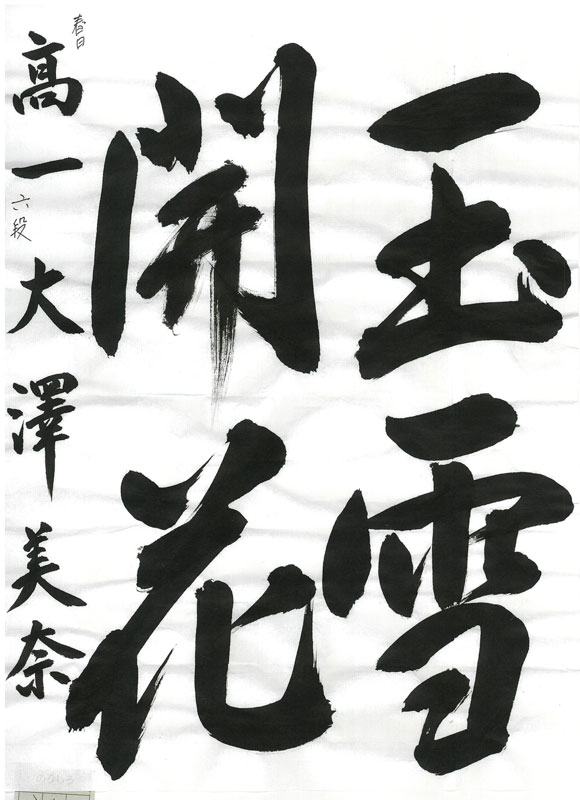 玉雪
開花
春日
高一 六段 大澤美奈